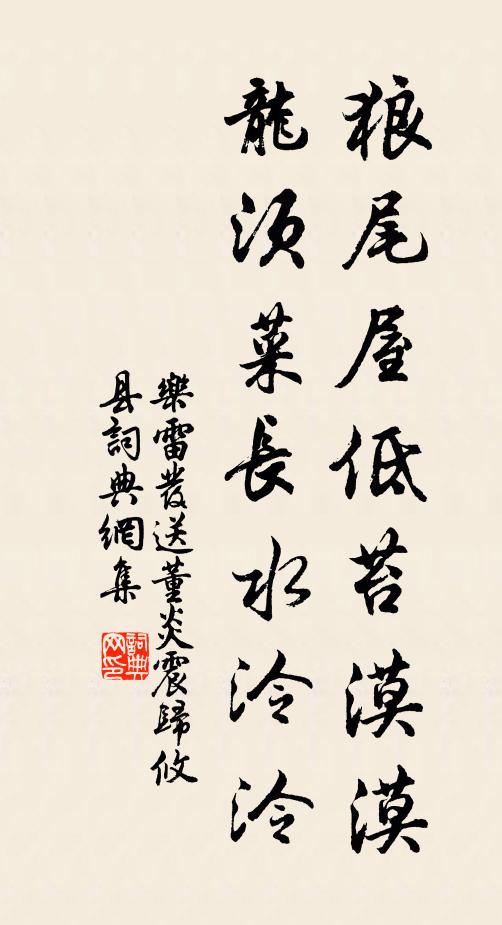 狼尾屋低苔漠漠
龍須菜長水泠泠
樂雷發送董炎震歸攸
县詞典網集
詞典
网印